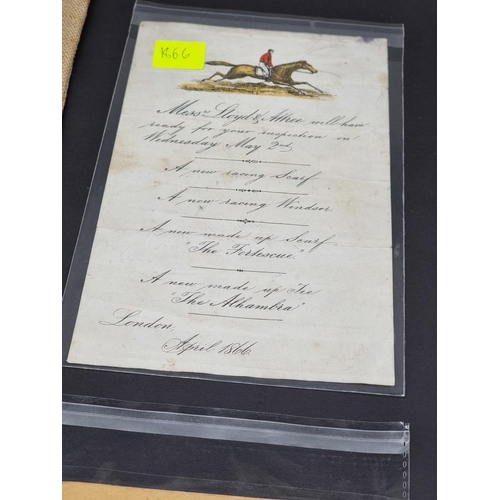 K66
Messrs Lloyd & Attree will have
ready for your inspection on
Wednesday May 2nd
A new racing Scarf
A new racing Windsor
A new made up Scarf
"The Fortescue"
A new made up Tie
"The Alhambra"
London,
April 1866.